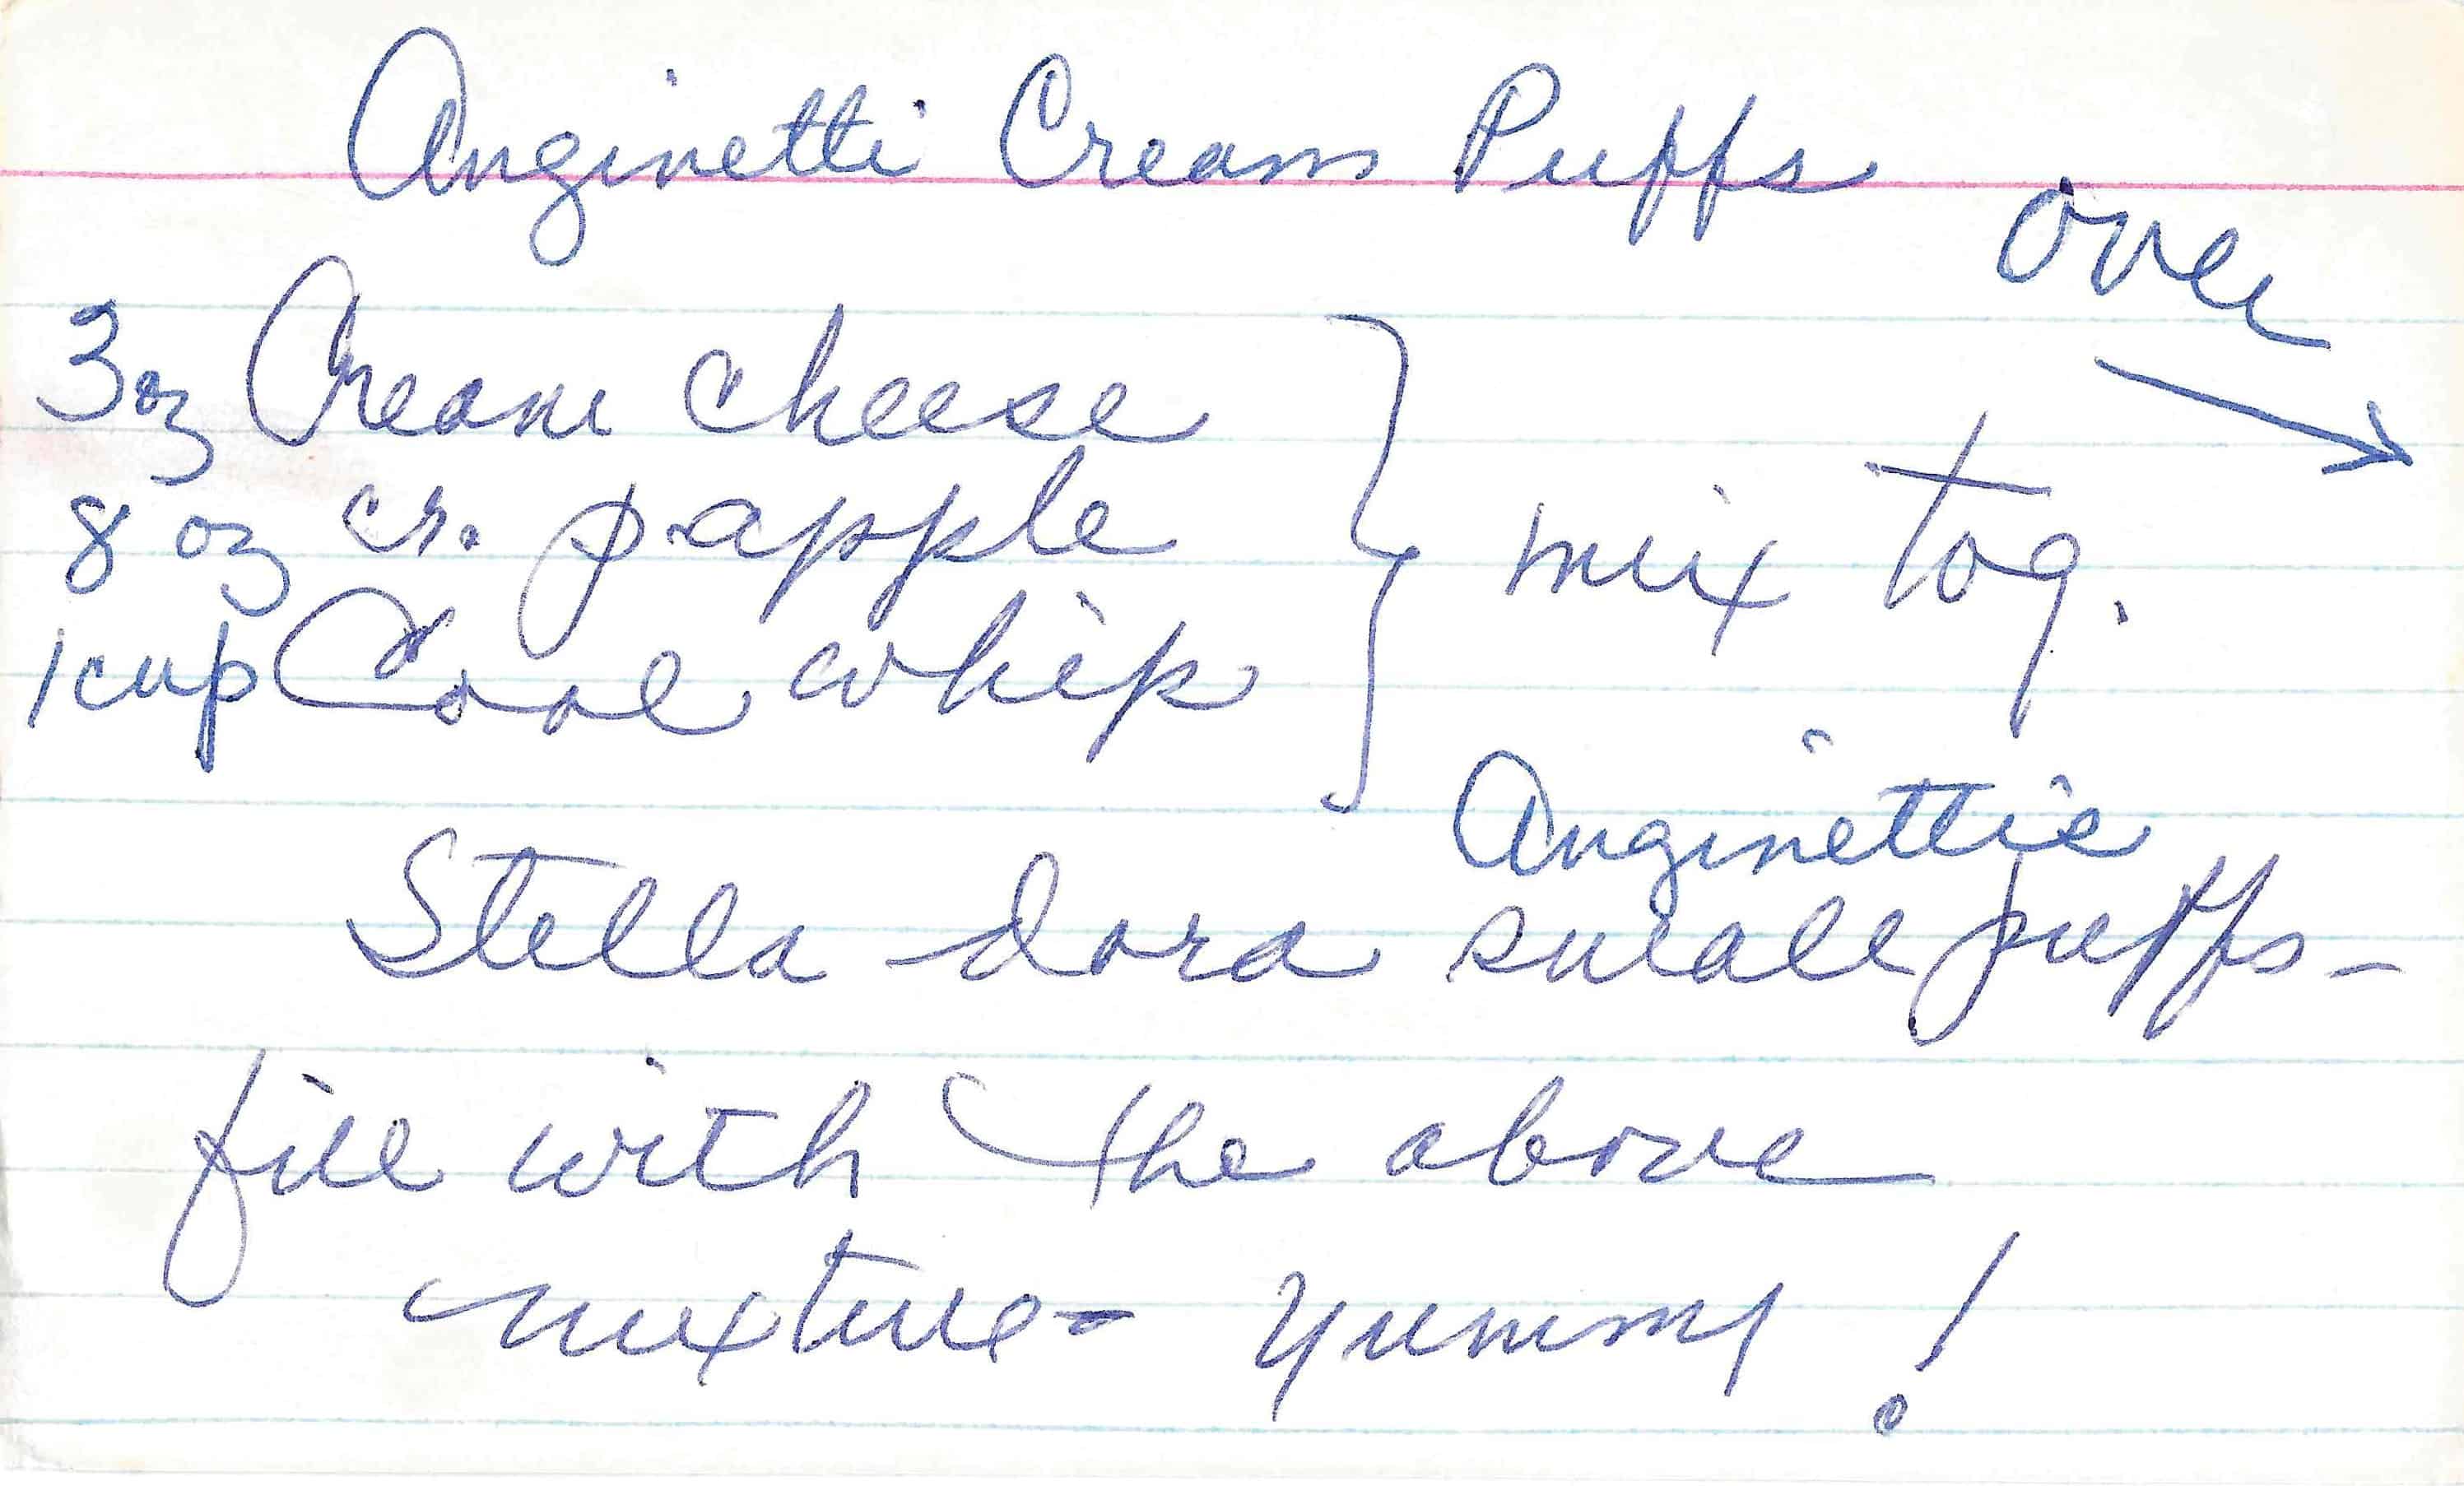 Anginetti Cream Puffs
over
3 oz Cream cheese
8 oz cr. p.apple
1 cup Cool whip
mix tog.
Anginettie
Stella dora small puffs -
fill with the above
mixture - yummy!